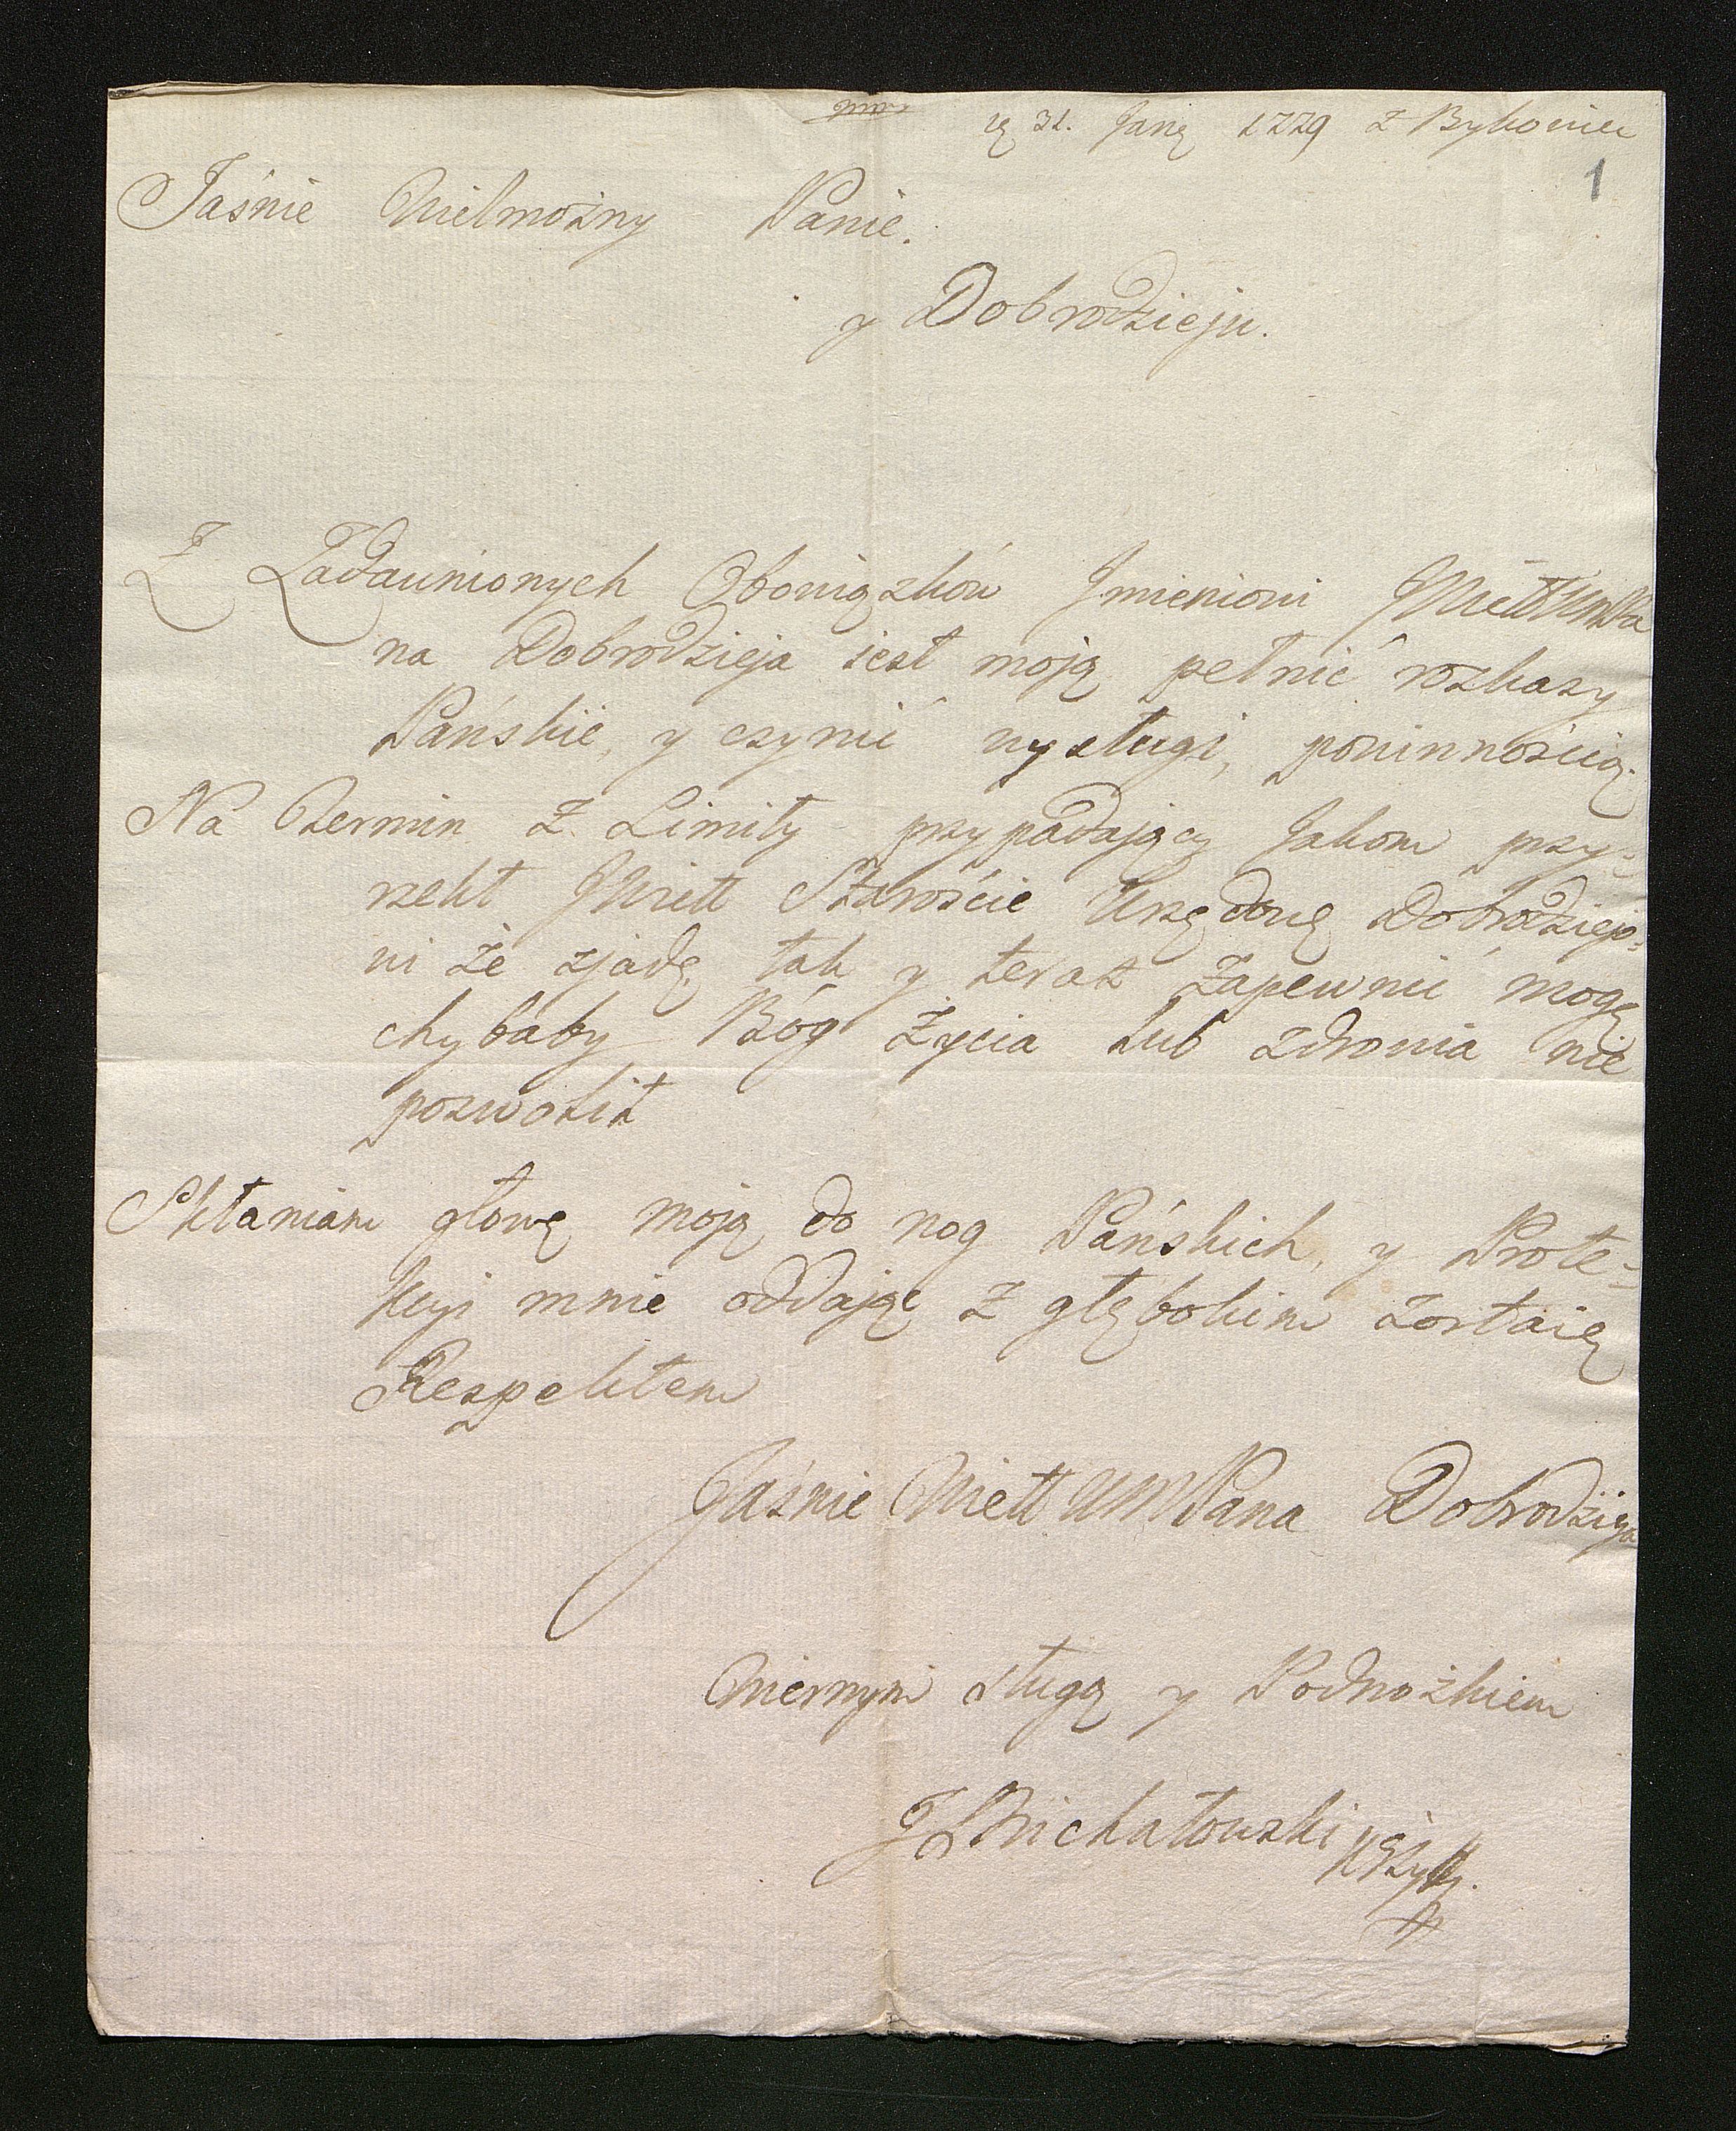 31. Janę 1779 z Bykowiec
1
Jaśnie Wielmożny Panie.
y Dobrodzieju.
Z Zadawnionych Obowiązków Jmieniowi JWiell WmPa
na Dobrodzieja iest moją pełnić rozkazy
Pańskie, y czynić wysługi, powinnością.
Na Termin z Limity przypadający Jakom przy=
rzekł JWiell Staroście Urzędowę Dobrodziejo=
wi że zjadę tak y teraz zapewnić mogę
chybaby Bóg życia lub zdrowia nie
pozwolił
Skłaniam głowę moją do nog Pańskich, y Prote=
kcyi mnie oddając z głębokim zostaię
Respektem
Jaśnie Wiell WM Pana Dobrodzieja
Wiernym sługą y Podnożkiem
J Michałowski